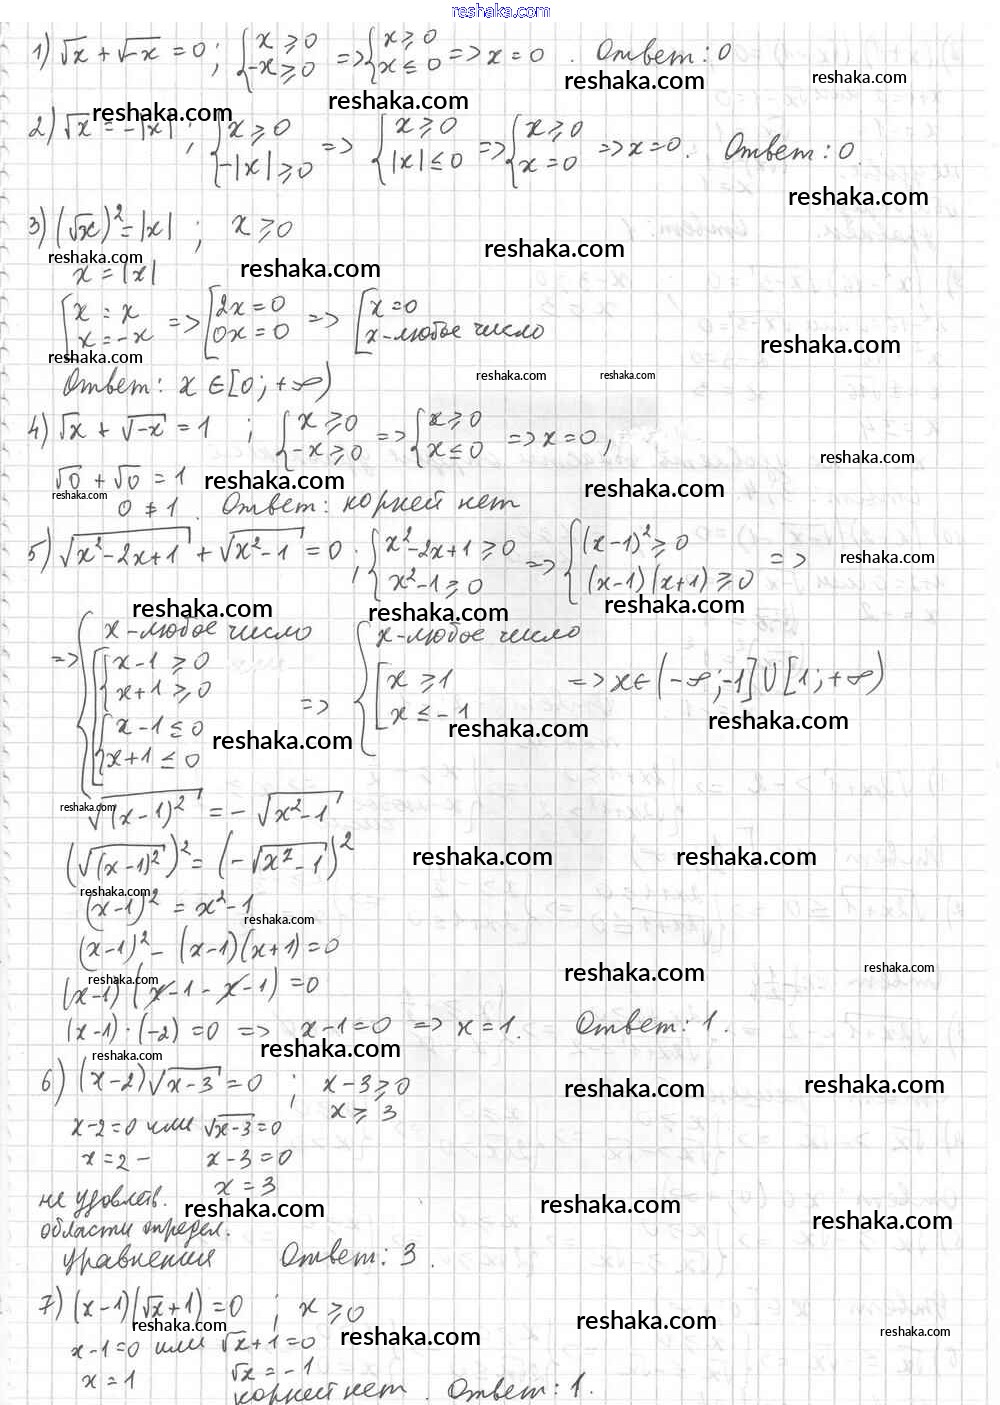 reshaka.com
1) √x + √-x = 0 ; { x ⩾ 0 -x ⩾ 0 => { x ⩾ 0 x ⩽ 0 => x = 0 . Ответ: 0
reshaka.com reshaka.com
reshaka.com reshaka.com
2) √x = -|x| ; { x ⩾ 0 -|x| ⩾ 0 => { x ⩾ 0 |x| ⩽ 0 => { x ⩾ 0 x = 0 => x = 0. Ответ: 0.
reshaka.com
3) (√x)² = |x| ; x ⩾ 0
reshaka.com reshaka.com reshaka.com
x = |x|
[ x = x x = -x => [ 2x = 0 0x = 0 => [ x = 0 x - любое число
reshaka.com reshaka.com
Ответ: x ∈ [0; +∞)
reshaka.com reshaka.com
4) √x + √-x = 1 ; { x ⩾ 0 -x ⩾ 0 => { x ⩾ 0 x ⩽ 0 => x = 0 ,
reshaka.com
√0 + √0 = 1
reshaka.com reshaka.com reshaka.com
0 ≠ 1 . Ответ: корней нет
5) √x²-2x+1 + √x²-1 = 0 ; { x²-2x+1 ⩾ 0 x²-1 ⩾ 0 => { (x-1)² ⩾ 0 (x-1)(x+1) ⩾ 0 =>
reshaka.com
reshaka.com reshaka.com reshaka.com
=> { x - любое число [ { x-1 ⩾ 0 x+1 ⩾ 0 { x-1 ⩽ 0 x+1 ⩽ 0 => { x - любое число [ x ⩾ 1 x ⩽ -1 => x ∈ (-∞; -1] ∪ [1; +∞)
reshaka.com reshaka.com reshaka.com
√(x-1)² = - √x²-1
reshaka.com
(√(x-1)²)² = (-√x²-1)²
reshaka.com reshaka.com
reshaka.com
(x-1)² = x²-1
reshaka.com
(x-1)² - (x-1)(x+1) = 0
reshaka.com reshaka.com reshaka.com
(x-1)(x-1-x-1) = 0
(x-1)·(-2) = 0 => x-1 = 0 => x = 1. Ответ: 1.
reshaka.com reshaka.com
6) (x-2)√x-3 = 0 ; x-3 ⩾ 0
reshaka.com reshaka.com
x ⩾ 3
x-2=0 или √x-3 = 0
x = 2 - x-3 = 0
x = 3
не удовлетв.
reshaka.com reshaka.com reshaka.com
области определ.
уравнения Ответ: 3.
7) (x-1)(√x+1) = 0 ; x ⩾ 0
reshaka.com reshaka.com reshaka.com reshaka.com
x-1=0 или √x+1=0
x = 1 √x = -1
корней нет. Ответ: 1.